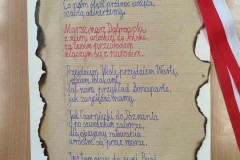 Co nam obca przemoc wzięła,
szablą odbierzemy.
Marsz, marsz Dąbrowski
z ziemi włoskiej do Polski,
za twoim przewodem
złączym się z narodem.
Przejdziem Wisłę, przejdziem Wartę,
będziem Polakami,
dał nam przykład Bonaparte,
jak zwyciężać mamy.
Jak Czarniecki do Poznania
po szwedzkim zaborze,
dla ojczyzny ratowania